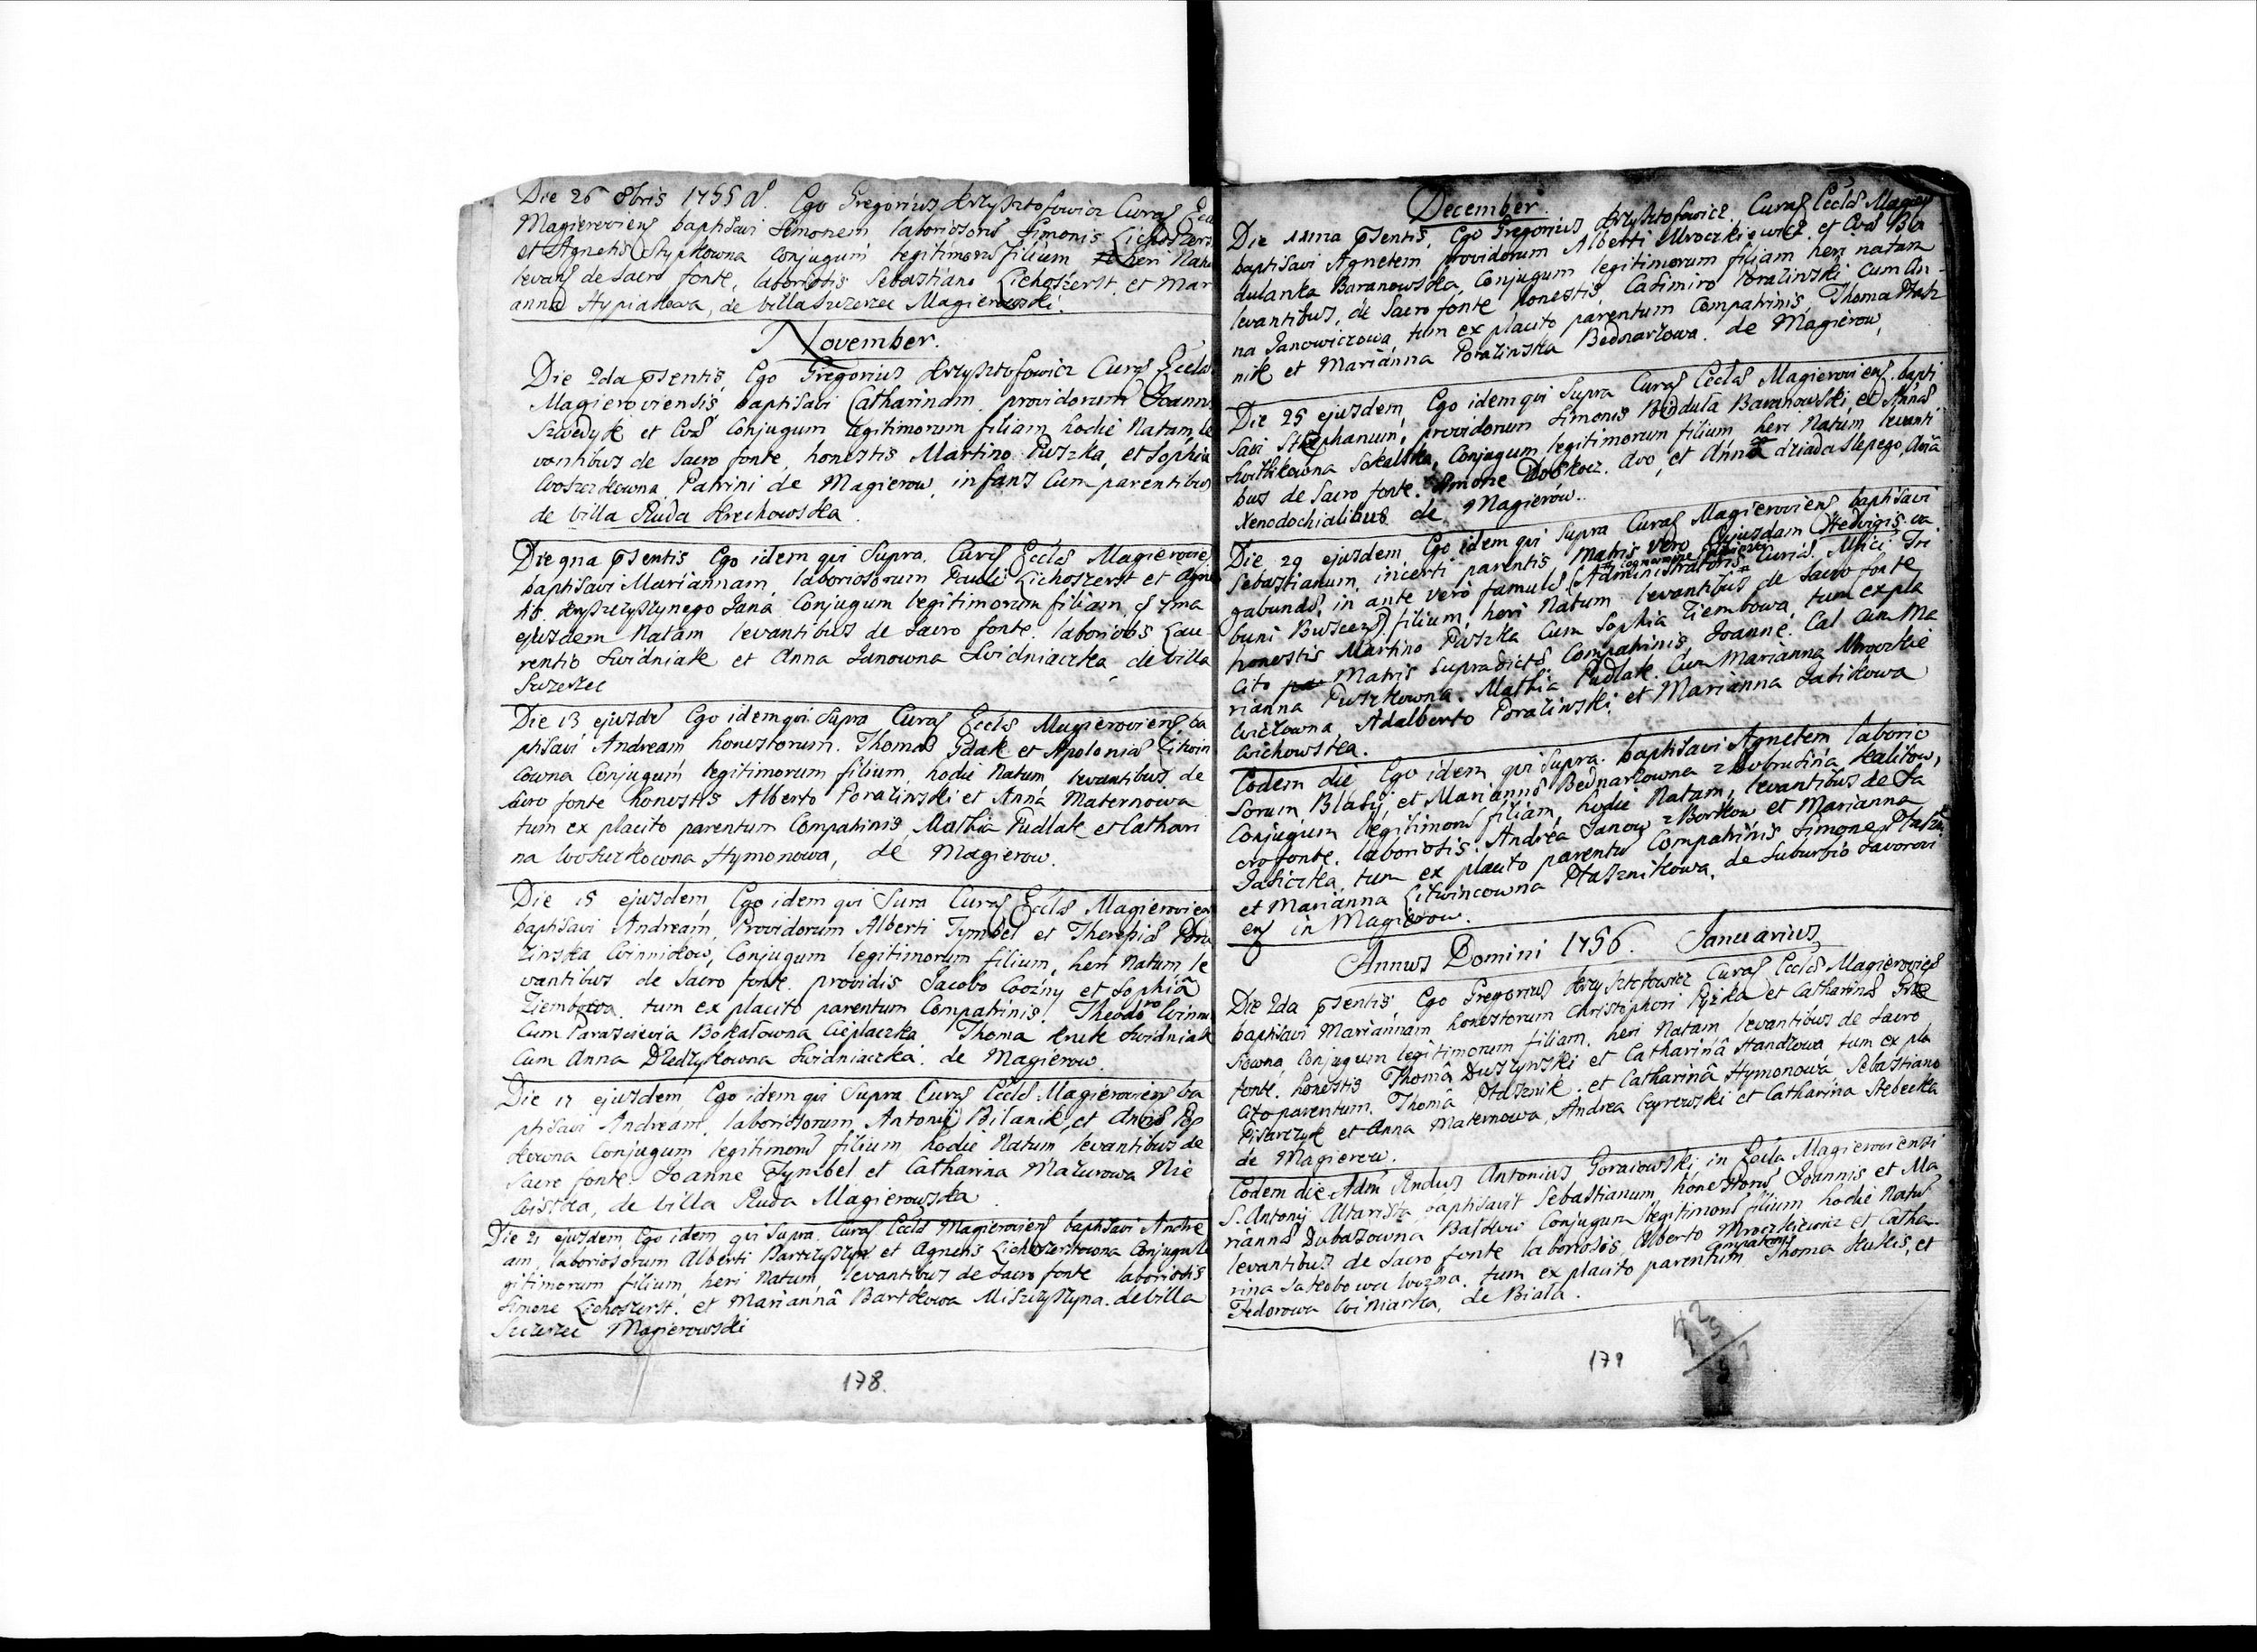 Die 26 8bris 1755 A. Ego Gregorius Krzysztofowicz Curaꝭ Eccl
Magierovienꝭ baptisavi Simonem laboriosorū Simonis Lichoszerst
et Agnetis Stypkowna Conjugum legitimorū filium heri Natu
levanꝭ de Sacro fonte, laboriosis Sebastiano Lichoszerst et Mar
anna Hypiakowa, de villa Szczerzec Magierowski.
November.
Die 2da pſentis, Ego Gregorius Krzysztofowicz Curaꝭ Eccla
Magieroviensis baptisavi Catharinam, providorum Joannis
Szwedyk et Evæ Conjugum legitimorum filiam hodie Natam, le
vantibus de Sacro fonte, honestis Martino Puszka, et Sophia
Woszczkowna Patrini de Magierow, infans Cum parentibus
de villa Ruda Krechowska.
Die 9na pſentis Ego idem qui Supra Curaꝭ Ecclæ Magierovie
baptisavi Mariannam, laboriosorum Pauli Lichoszerst et Agne
tis Jana Conjugum legitimorum filiam, 7ma
ejusdem Natam levantibus de Sacro fonte, laboriosis Lau-
rentio Swidniak et Anna Janowna Swidniaczka, de villa
Szczerzec
Die 13 ejusdē Ego idem qui Supra Curaꝭ Ecclæ Magierovienꝭ ba
ptisavi Andream honestorum Thomæ Gdak et Apoloniæ Litwin
cowna Conjugum legitimorum filium, hodie Natum levantibus de
Sacro fonte honestis Alberto Poraziński et Anna Maternowa
tum ex placito parentum Compatrinis, Mathia Pudlak et Cathari
na Woszczkowna Szymonowa, de Magierow.
Die 15 ejusdem Ego idem qui Sura Curaꝭ Ecclæ Magierovien
baptisavi Andream, Providorum Alberti Tymbel et Theresiæ Pora
zinska Winnikow, Conjugum legitimorum filium, heri Natum le
vantibus de Sacro fonte, providis Jacobo Wozny et Sophiâ
Ziembowa, tum ex placito parentum Compatrinis, Theodoro Winni
Cum Parascievia Bokalowna Cieplaczka Thoma Kruk Swidniak
Cum Anna Dzedzykowna Swidniaczka. de Magierow.
Die 17 ejusdem Ego idem qui Supra Curaꝭ Ecclæ Magierovienꝭ ba
ptisavi Andream, laboriosorum Antonij Bilanik, et
kowna Conjugum legitimorū filium hodie Natum levantibus de
Sacro fonte Joanne Tymbel et Catharina Mazurowa Nie
wistka, de villa Ruda Magierowska
Die 21 ejusdem Ego idem qui Supra Curaꝭ Ecclæ Magierovienꝭ baptisavi Andre
am, laboriosorum Alberti Bartczyszyn et Agnetis Lichoszerstowna Conjugū le
gitimorum filium, heri Natum, levantibus de Sacro fonte laboriosis
Simone Lichoszerst et Mariannâ Bartkowa Misczyszyna. de villa
Szczerzec Magierowski
178.
December.
Die 11ma pſentis, Ego Gregorius Krzysztofowicz, Curaꝭ Ecclæ Magier
baptisavi Agnetem providorum Alberti Mroczkiewicz et Evæ Bla
dulanka Baranowska, Conjugum legitimorum filiam heri natam
levantibus, de Sacro fonte honestis, Casimiro Poraziński Cum An-
na Janowiczowa, tum ex placito parentum Compatrinis, Thoma Ptasz
nik et Marianna Porazinska Bednarzowa. de Magierow,
Die 25 ejusdem, Ego idem qui Supra Curaꝭ Ecclæ Magierovienꝭ bapti
savi Stephanum, providorum Simonis Baranowski, et Annæ
Sokalska, Conjugum legitimorum filium heri Natum, levanti
bus de Sacro fonte. Simone avo, et Anna dziada slepego,
Xenodochialibus de Magierow.
Die 29 ejusdem Ego idem qui Supra Curaꝭ Magierovienꝭ baptisavi
Sebastianum, incerti parentis Matris vero Cujusdam Hedvigis va
gabundæ, in ante vero famulæ Administratoris Curiæ. Mfici Tri
buni filium, heri Natum levantibus de Sacro fonte
honestis Martino Puszka Cum Sophia Ziembowa, tum ex pla
cito Matris Supradictæ Compatrinis, Joanne Cal Cum Ma
rianna Puszkowna. Mathia Pudlak Cum Marianna Mroczkie
wiczowna, Adalberto Poraziński et Marianna Jasikowa
Wichowska.
Eodem die Ego idem qui Supra baptisavi Agnetem laborio
sorum Blasij et Mariannæ Bednarzowna z Kalitow,
Conjugum legitimorū filiam, hodie Natam, levantibus de Sa
cro fonte. laboriosis. Andrea Janow z Borkow et Marianna
Jasiczka, tum ex placito parentū Compatrinis Simone Ptaszn
et Marianna Litwincowna Ptasznikowa, de Suburbio Javorovi
enꝭ in Magierow.
Annus Domini 1756. Januarius
Die 2da pſentis, Ego Gregorius Krzysztofowicz Curaꝭ Ecclæ Magierovienꝭ
baptisavi Mariannam honestorum Christophori et Catharinæ
Conjugum legitimorum filiam. heri Natam levantibus de Sacro
fonte. honestis Thomâ Duszynski et Catharinâ tum ex pla
cito parentum. Thomâ Ptasznik et Catharinâ Szymonowa Sebastiano
Pisarczyk et Anna Maternowa, Andrea et Catharina
de Magierow.
Eodem die Adm Rndus Antonius Goraiowski, in Eccla Magieroviensi
S. Antonij Altarista, baptisavit Sebastianum, honestorū Joannis et Ma
riannæ Dubasowna Conjugum legitimorū filium hodie Natū
levantibus de Sacro fonte laboriosis, Alberto Mroczkiewicz et Catha-
rina Jakobowa Wozna. tum ex placito parentum Compatrinis Thoma et
Fedorowa Winiarka, de Biala.
179